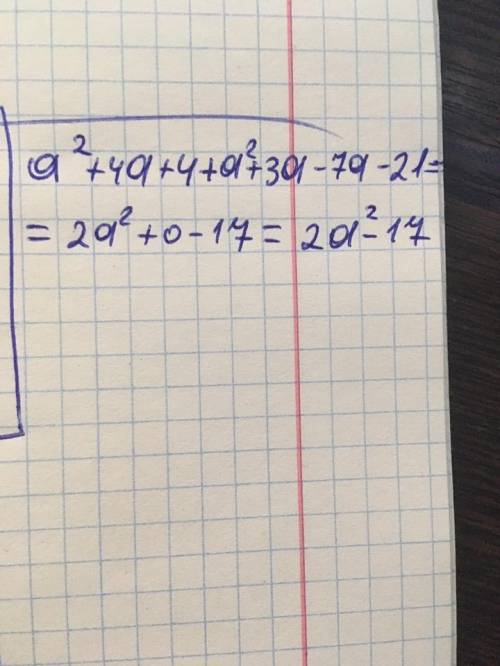 a²+4a+4+a²+3a-7a-21=
= 2a²+0-17= 2a²-17